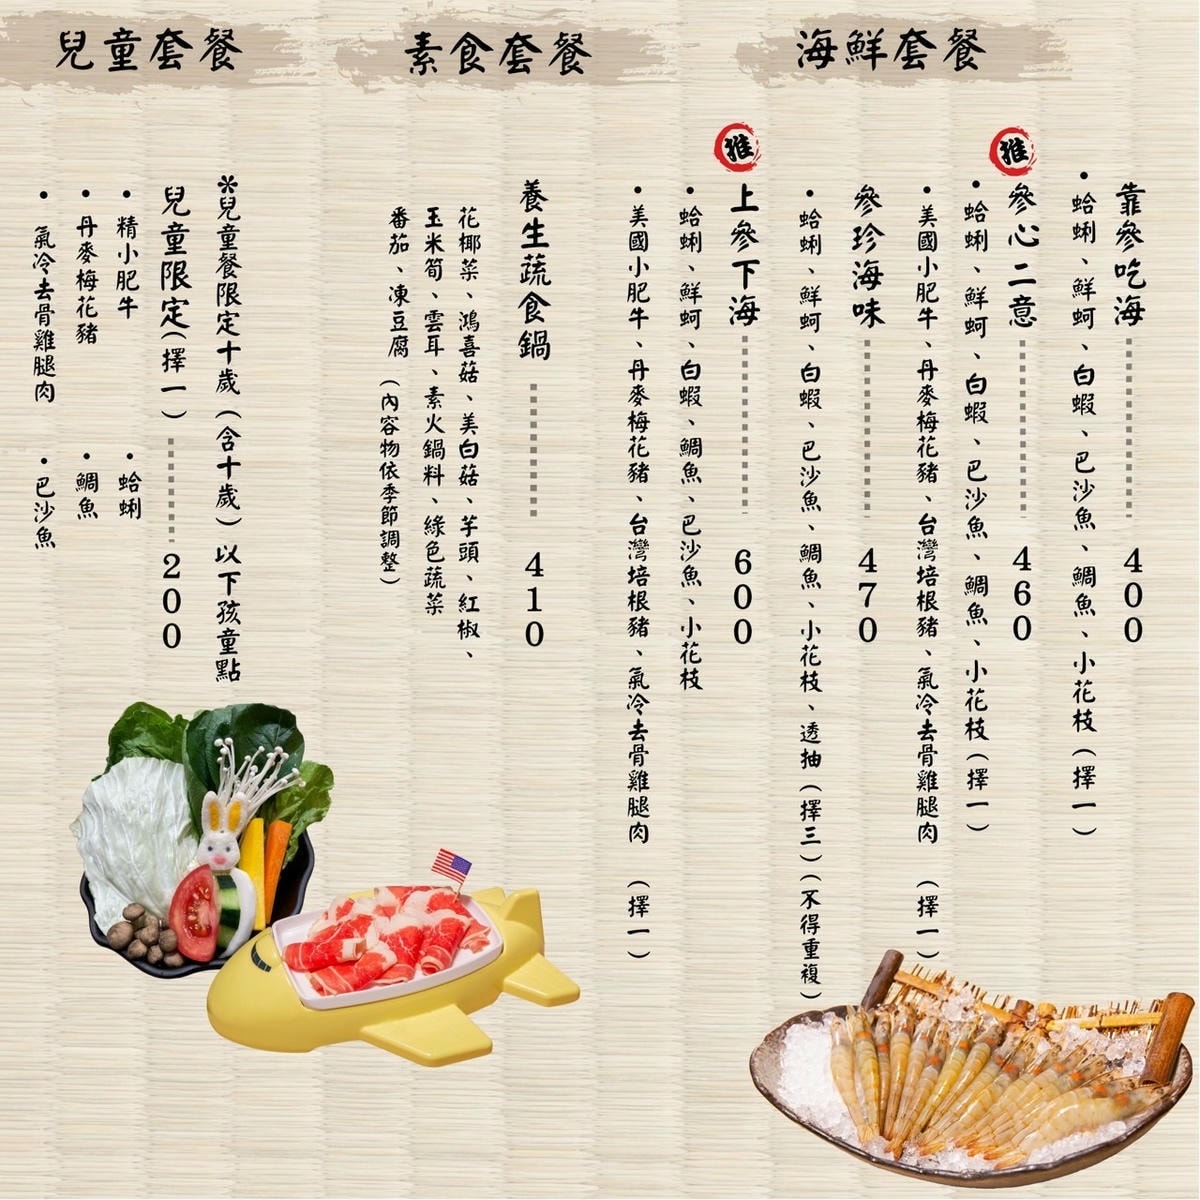 海鮮套餐
靠參吃海 400
• 蛤蜊、鮮蚵、白蝦、巴沙魚、鯛魚、小花枝(擇一)
推
參心二意 460
• 蛤蜊、鮮蚵、白蝦、巴沙魚、鯛魚、小花枝(擇一)
• 美國小肥牛、丹麥梅花豬、台灣培根豬、氣冷去骨雞腿肉 (擇一)
參珍海味 470
• 蛤蜊、鮮蚵、白蝦、巴沙魚、鯛魚、小花枝、透抽(擇三)(不得重複)
推
上參下海 600
• 蛤蜊、鮮蚵、白蝦、鯛魚、巴沙魚、小花枝
• 美國小肥牛、丹麥梅花豬、台灣培根豬、氣冷去骨雞腿肉 (擇一)
素食套餐
養生蔬食鍋 410
花椰菜、鴻喜菇、美白菇、芋頭、紅椒、
玉米筍、雲耳、素火鍋料、綠色蔬菜
番茄、凍豆腐 (內容物依季節調整)
兒童套餐
*兒童餐限定十歲(含十歲)以下孩童點
兒童限定(擇一) 200
• 精小肥牛 • 蛤蜊
• 丹麥梅花豬 • 鯛魚
• 氣冷去骨雞腿肉 • 巴沙魚